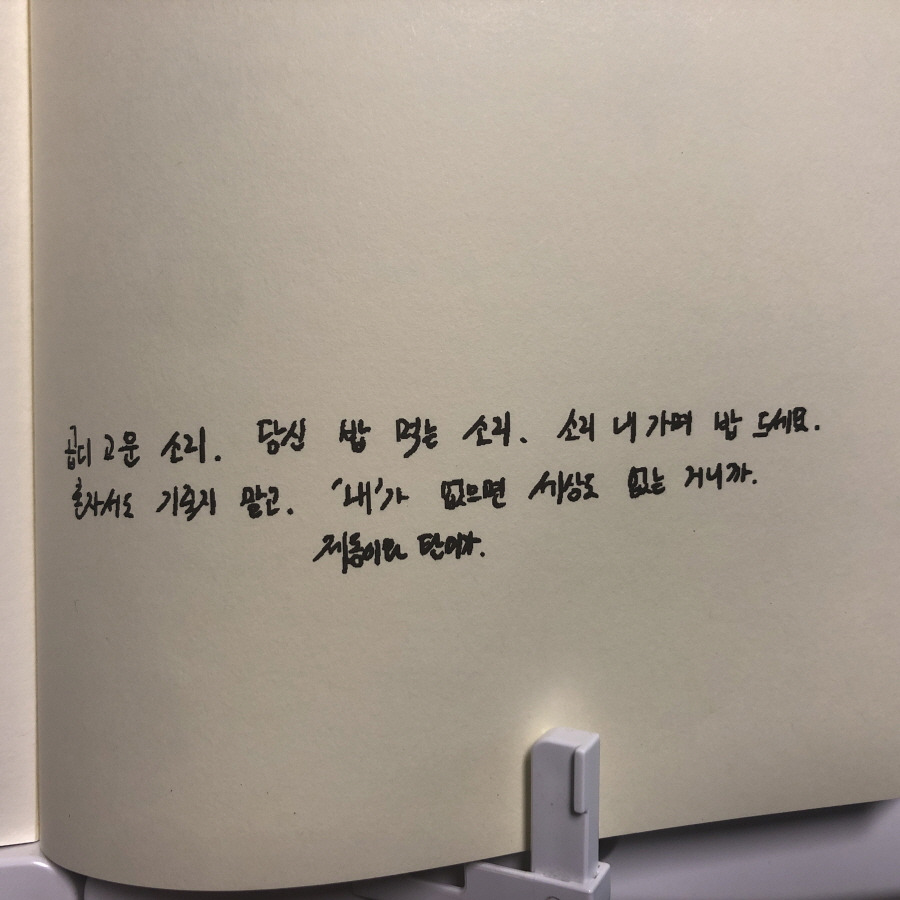 곱디 고운 소리. 당신 밥 먹는 소리. 소리 내 가며 밥 드세요.
혼자서도 기죽지 말고. '내'가 없으면 세상도 없는 거니까.
제동이와 탄이가.